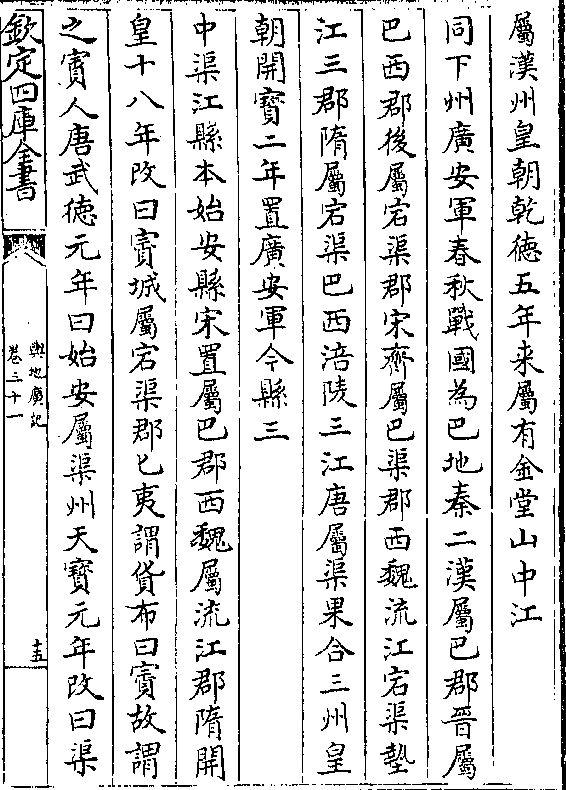 屬漢州皇朝乾徳五年来屬有金堂山中江
同下州廣安軍春秋戰國為巴地秦二漢屬巴郡晉屬
巴西郡後屬宕渠郡宋齊屬巴渠郡西魏流江宕渠墊
江三郡隋屬宕渠巴西涪陵三江唐屬渠果合三州皇
朝開寶二年置廣安軍今縣三
中渠江縣本始安縣宋置屬巴郡西魏屬流江郡隋開
皇十八年改曰賨城屬宕渠郡巴夷謂貨布曰賨故謂
之賨人唐武徳元年曰始安屬渠州天寶元年改曰渠
欽定四庫全書
輿地廣記
卷三十一
十五